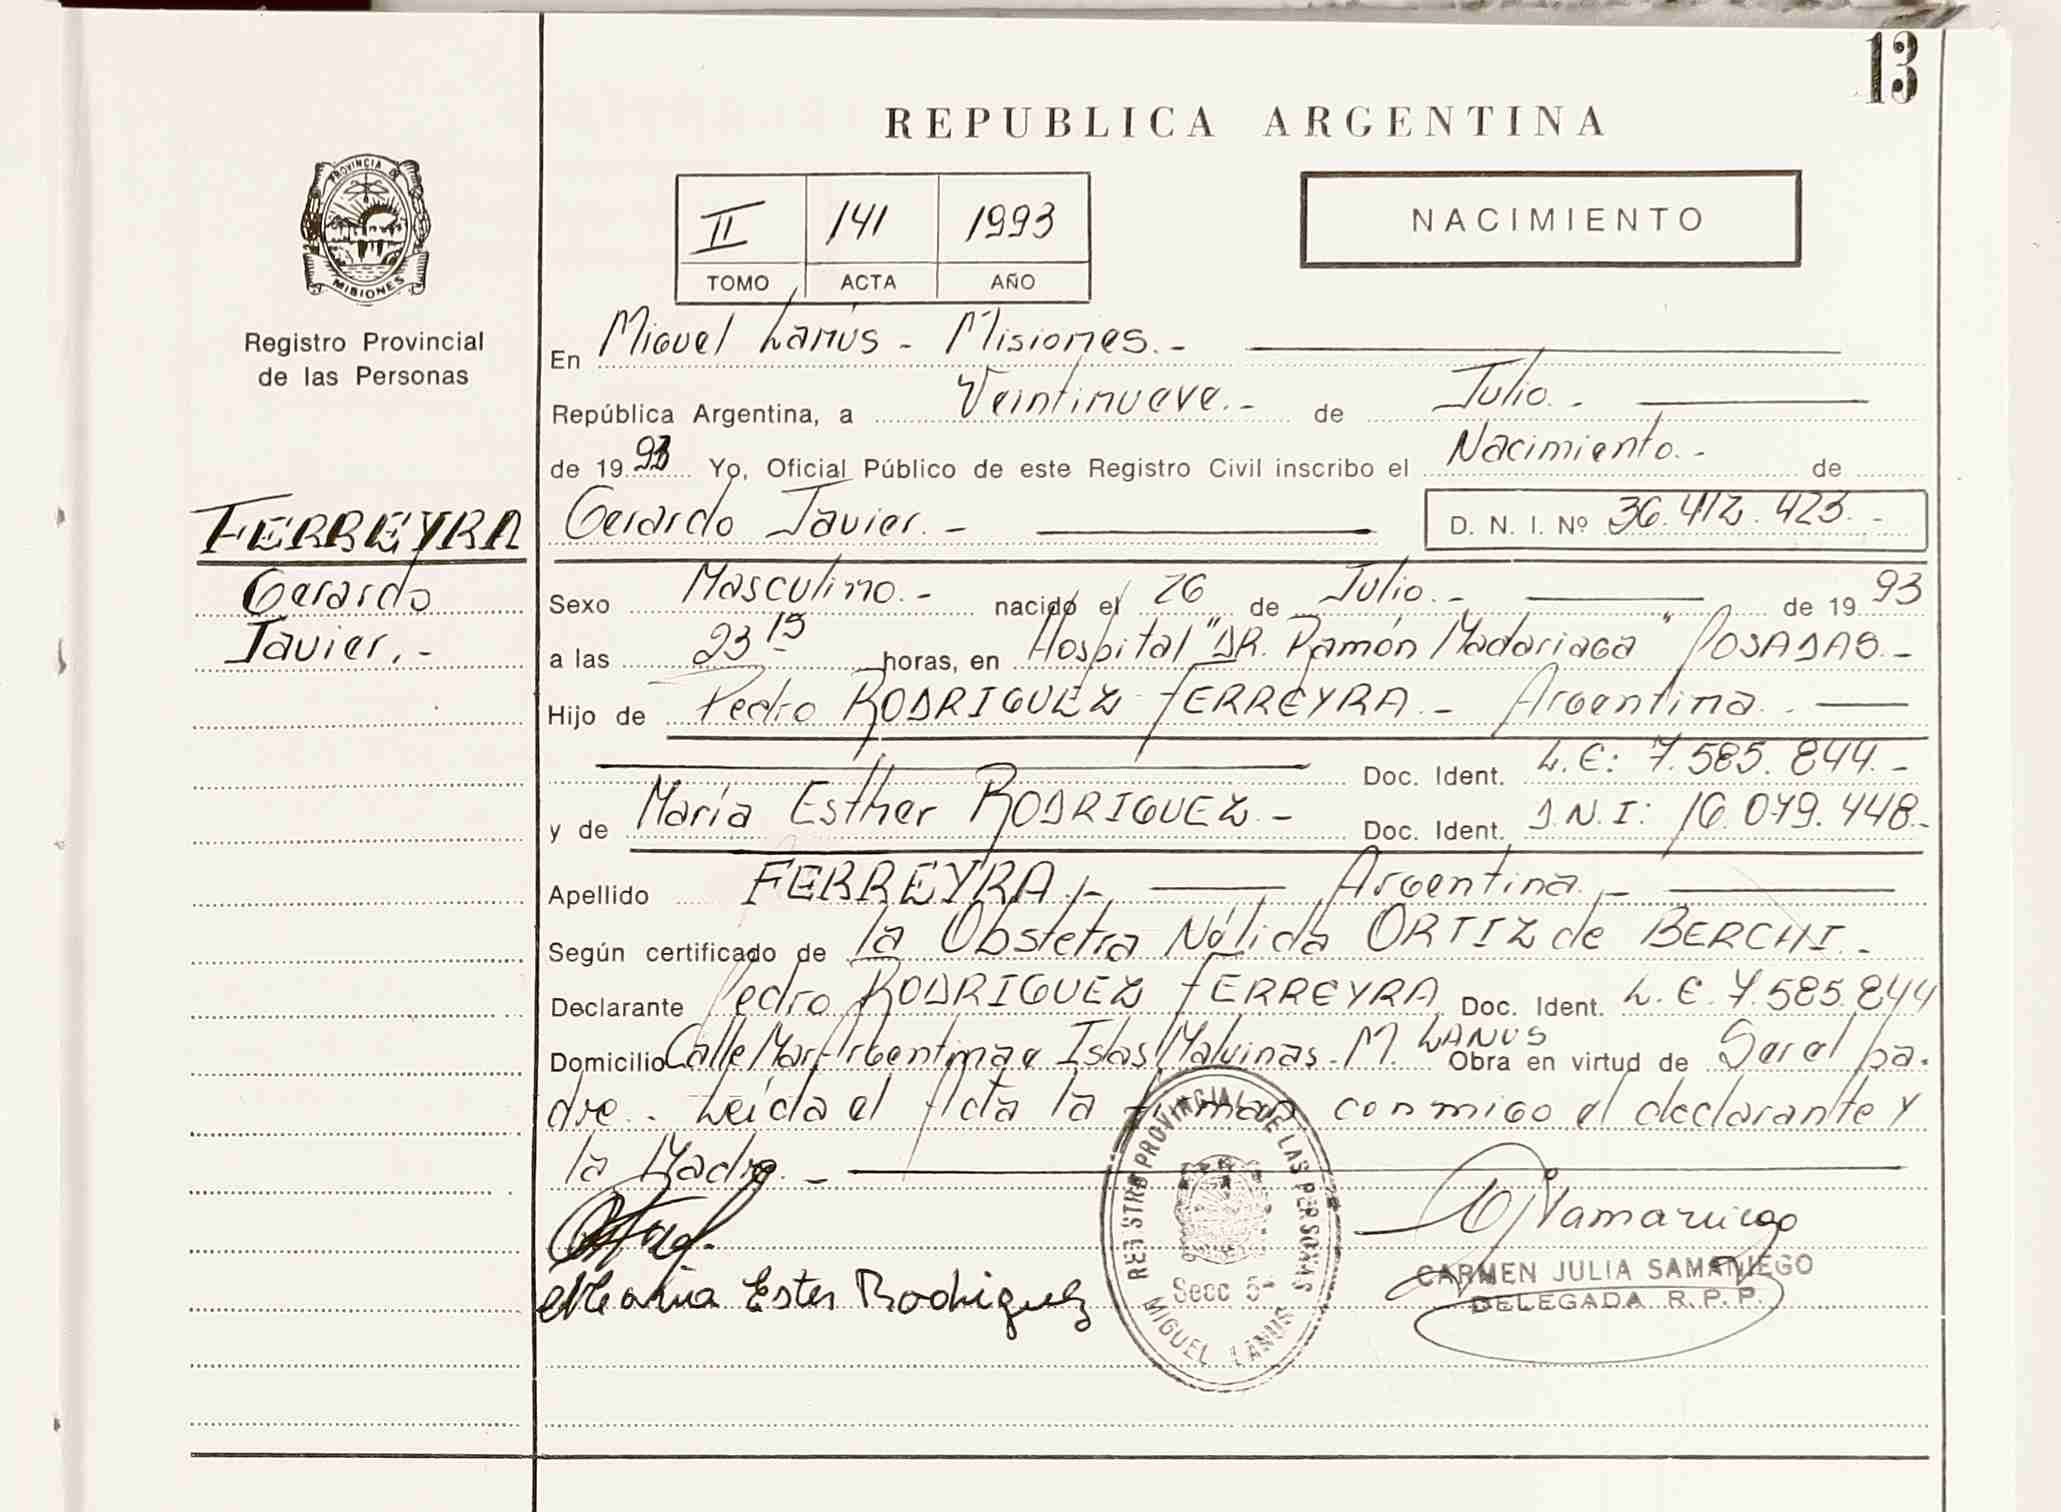 13
REPUBLICA ARGENTINA
PROVINCIA DE
MISIONES
II 141 1993
TOMO ACTA AÑO
NACIMIENTO
Registro Provincial
de las Personas
En Miguel Lanús - Misiones.-
República Argentina, a Veintinueve.- de Julio.-
de 19 93 Yo, Oficial Público de este Registro Civil inscribo el Nacimiento.- de
FERREYRA
Gerardo
Javier.-
Gerardo Javier.- D. N. I. Nº 36.412.423.-
Sexo Masculino.- nacido el 26 de Julio.- de 19 93
a las 23 15 horas, en Hospital "DR. Ramón Madariaga" POSADAS.-
Hijo de Pedro RODRIGUEZ FERREYRA.- Argentina.
Doc. Ident. L.E: 7.585.844.-
y de María Esther RODRIGUEZ.- Doc. Ident. D.N.I: 16.079.448.-
Apellido FERREYRA.- Argentina.-
Según certificado de la Obstetra Nélida ORTIZ de BERCHI.-
Declarante Pedro RODRIGUEZ FERREYRA Doc. Ident. L.E. 7.585.844
Domicilio Calle Mar Argentina e Islas Malvinas - M. LANUS Obra en virtud de Ser el pa-
dre.- Leída el Acta la firman conmigo el declarante y
la Madre.-
Maria Ester Rodriguez
REGISTRO PROVINCIAL DE LAS PERSONAS
Secc 5ª
MIGUEL LANUS
CJSamaniego
CARMEN JULIA SAMANIEGO
DELEGADA R.P.P.